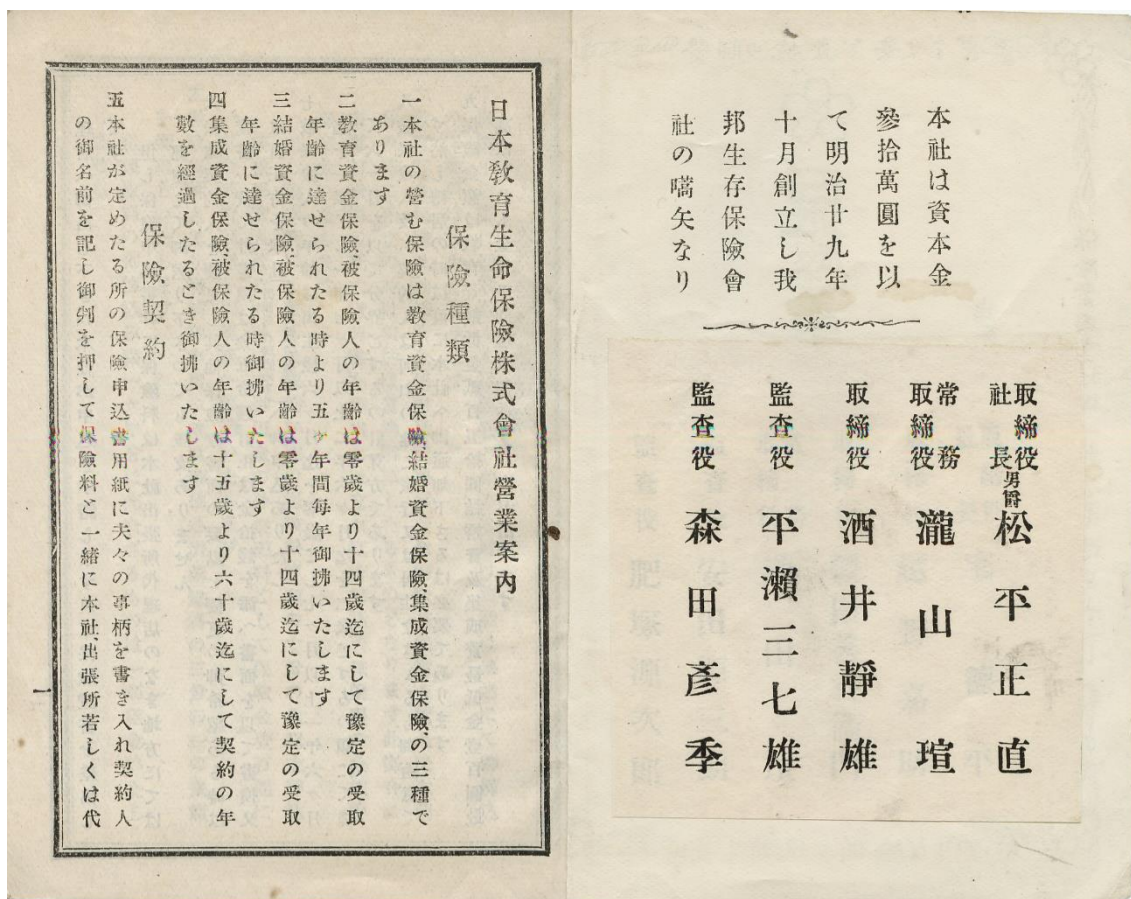 本社は資本金
參拾萬圓を以
て明治廿九年
十月創立し我
邦生存保險會
社の嚆矢なり
取締役
社長
男爵
松平正直
常務
取締役
瀧山瑄
取締役
酒井靜雄
監査役
平瀨三七雄
監査役
森田彥季
日本敎育生命保險株式會社營業案內
保險種類
一本社の營む保險は敎育資金保險、結婚資金保險、集成資金保險、の三種で
あります
二敎育資金保險、被保險人の年齡は零歲より十四歲迄にして豫定の受取
年齡に達せられたる時より五ヶ年間每年御拂いたします
三結婚資金保險、被保險人の年齡は零歲より十四歲迄にして豫定の受取
年齡に達せられたる時御拂いたします
四集成資金保險、被保險人の年齡は十五歲より六十歲迄にして契約の年
數を經過したるとき御拂いたします
保險契約
五本社が定めたる所の保險申込書用紙に夫々の事柄を書き入れ契約人
の御名前を記し御判を押して保險料と一緒に本社、出張所若しくは代
一